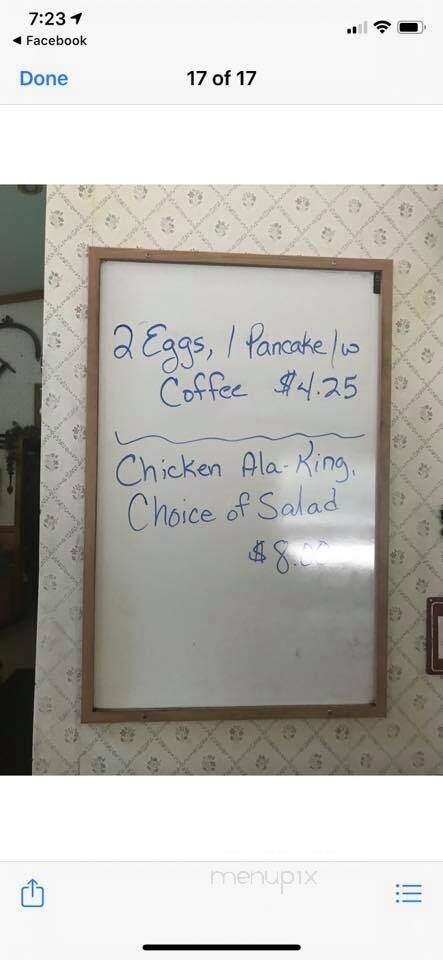 7:23
◀ Facebook
Done
17 of 17
2 Eggs, 1 Pancake / w
Coffee $4.25
Chicken Ala-King,
Choice of Salad
$8.00
menupix